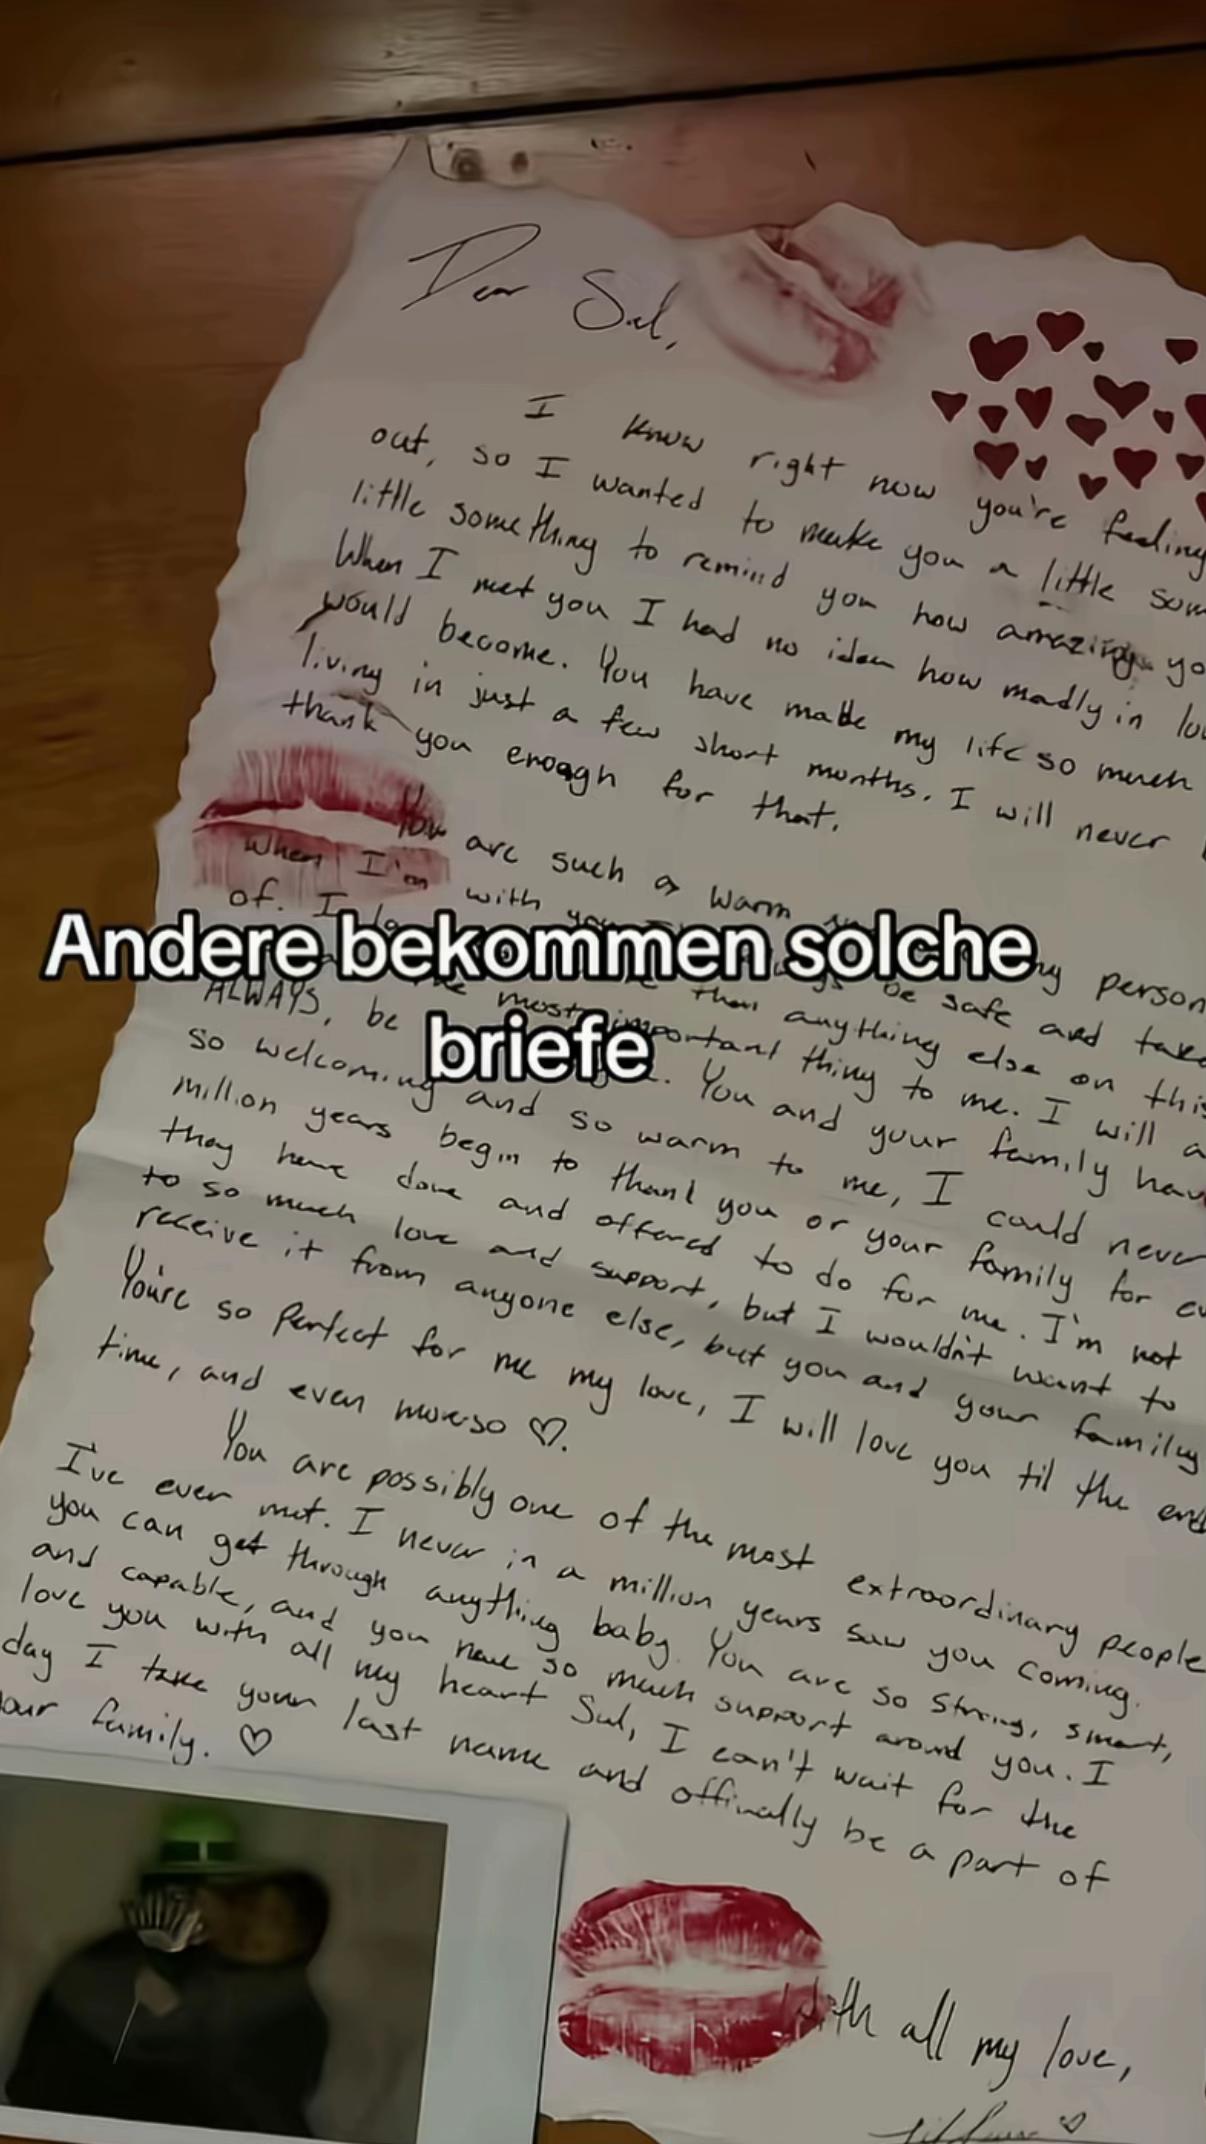 Dear Sul,
I know right now you're feeling
out, so I wanted to make you a little
little something to remind you how amazing
When I met you I had no idea how madly in
would become. You have made my life so much
living in just a few short months. I will never
thank you enough for that.
You are such a warm person
When I'm with be safe and
of. I than anything else on this
ALWAYS, be most important thing to me. I will
so welcoming and so warm to me, You and your family
million years begin to thank you or your family for I could never
they have done and offered to do for me. I'm not
to so much love and support, but I wouldn't want to
receive it from anyone else, but you and your family
You're so perfect for me my love, I will love you til the end
time, and even moreso ♡.
You are possibly one of the most extraordinary people
I've ever met. I never in a million years saw you coming.
you can get through anything baby. You are so strong, smart,
and capable, and you have so much support around you. I
love you with all my heart Sul, I can't wait for the
day I take your last name and offinally be a part of
your family. ♡
With all my love,
Andere bekommen solche
briefe